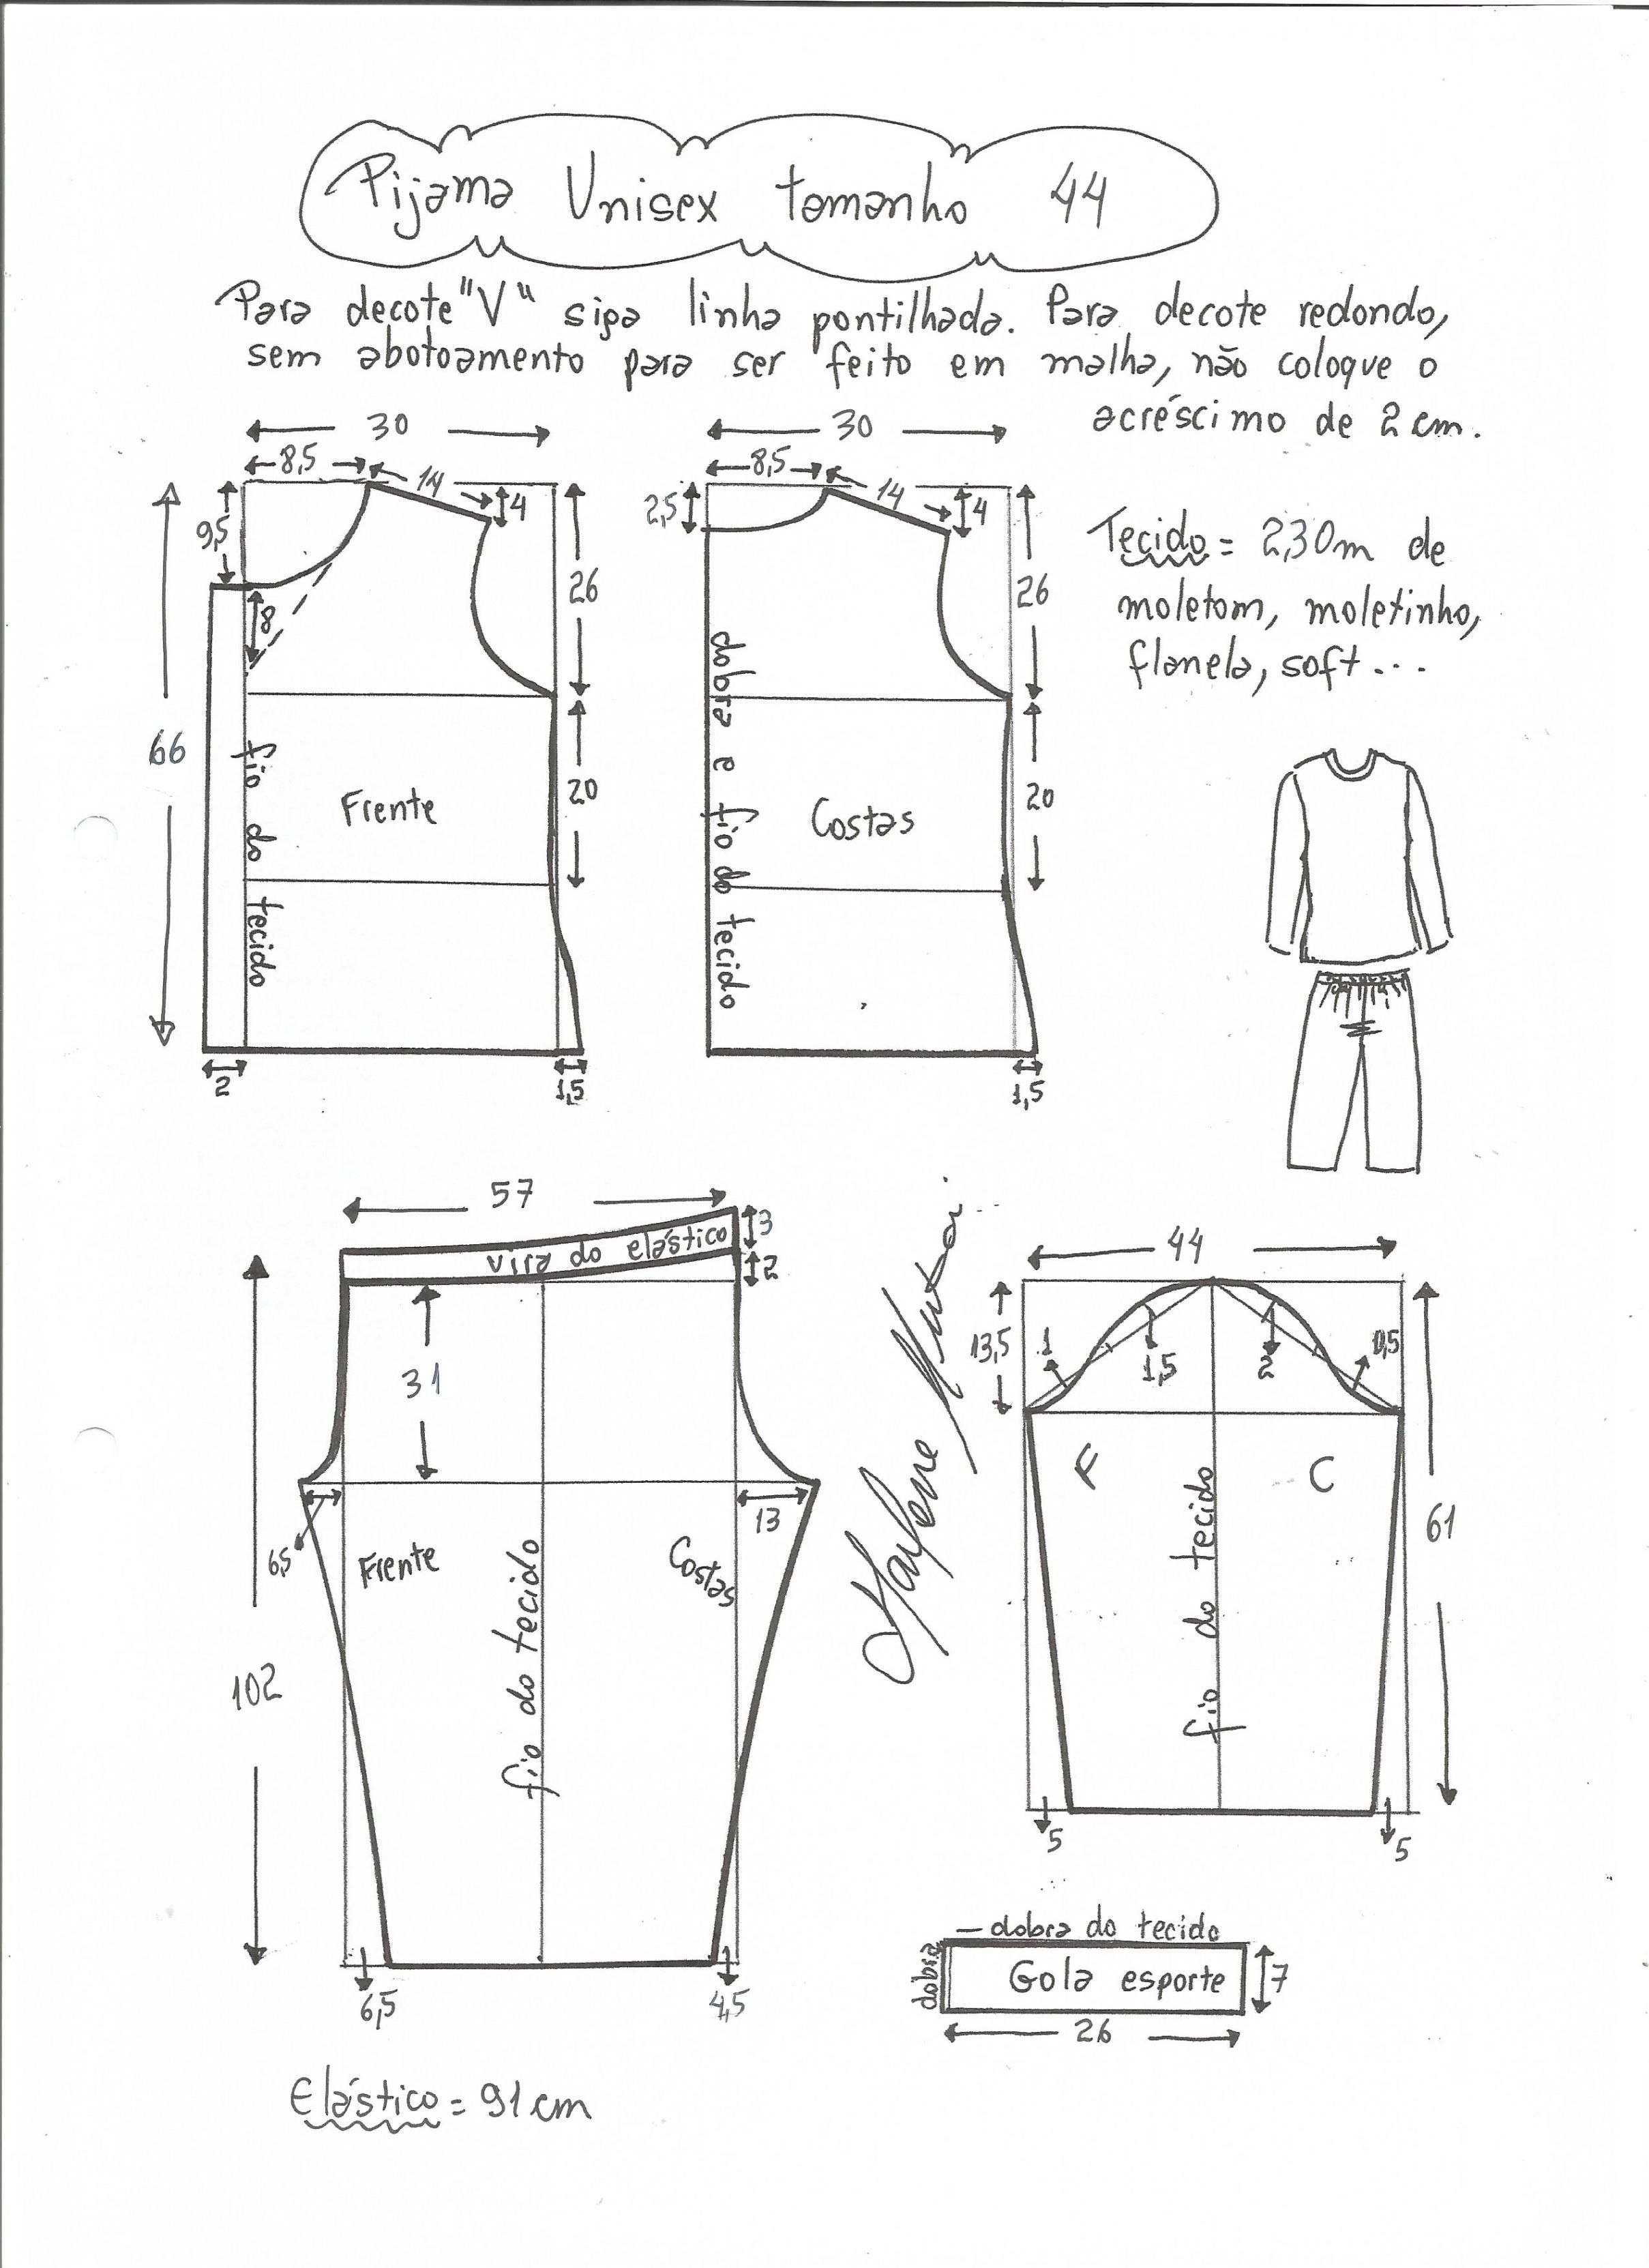 Pijama Unisex tamanho 44
Para decote "V" siga linha pontilhada. Para decote redondo,
sem abotoamento para ser feito em malha, não coloque o
acréscimo de 2 cm.
30
30
8,5
14
4
8,5
14
4
9,5
2,5
8
26
26
Tecido = 2,30m de
moletom, moletinho,
flanela, soft...
66
fio do tecido
Frente
20
dobra e fio do tecido
Costas
20
2
1,5
1,5
57
vira do elástico
3
2
44
31
13,5
1
1,5
2
0,5
6,5
13
Frente
Costas
fio do tecido
102
F
C
fio do tecido
61
Marlene Mukai
5
5
6,5
4,5
dobra do tecido
dobra
Gola esporte
7
26
Elástico = 91 cm